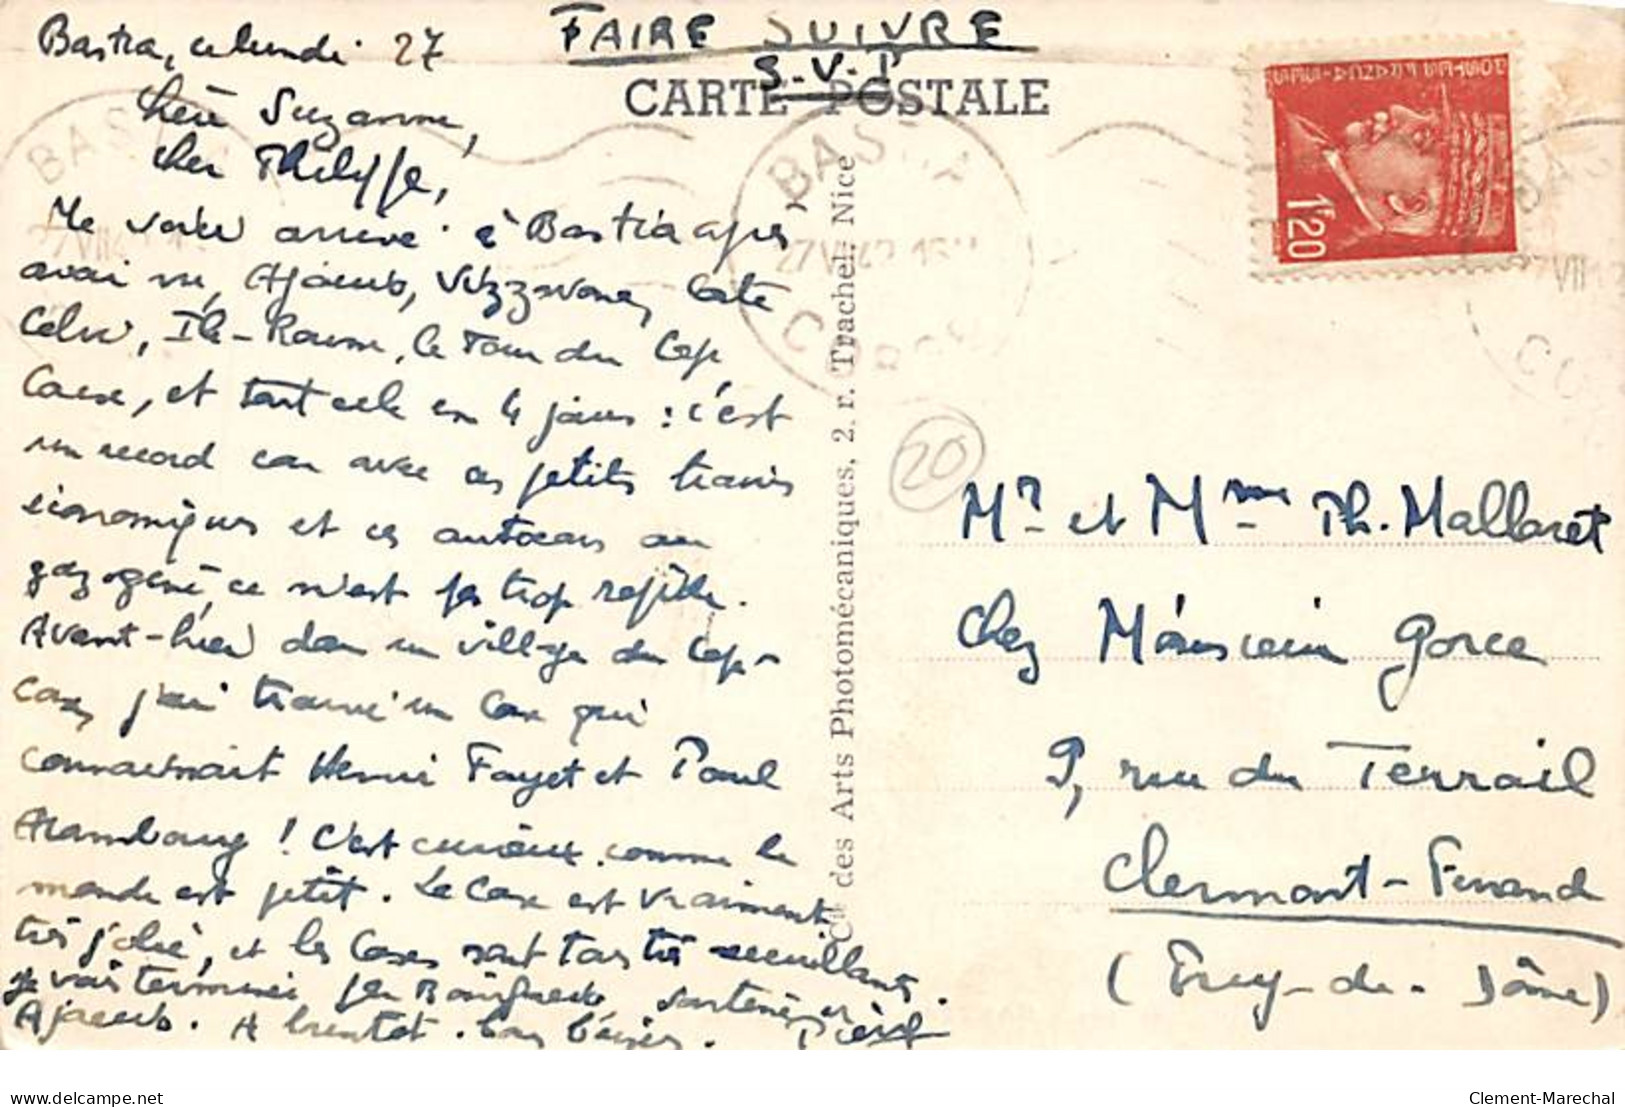 FAIRE SUIVRE
S.V.P
CARTE POSTALE
Bastia, ce lundi 27
Chère Suzanne,
cher Philippe,
Me voici arrivé à Bastia après
avoir vu, Ajaccio, Vizzavona,
Calvi, Ile-Rousse, le Tour du Cap
Corse, et tout cela en 4 jours : c'est
un record car avec ces petits trains
économiques et ces autocars au
gazogène, ce n'est pas trop rapide.
Avant-hier dans un village du Cap-
Corse, j'ai trouvé un Corse qui
connaissait Henri Fayet et Paul
Arambourg ! C'est curieux comme le
monde est petit. La Corse est vraiment
très jolie, et les Corses sont tous très accueillants.
je vais terminer par Sartène, et
Ajaccio. A bientôt. Bons baisers.
Cie des Arts Photomécaniques, 2, r. Trachel, Nice
BASTIA
27 VII 42
CORSE
1F20
20
Mr et Mme Ph. Mallaret
chez Monsieur Gorce
9, rue du Terrail
Clermont-Ferrand
(Puy-de-Dôme)
Clement-Marechal